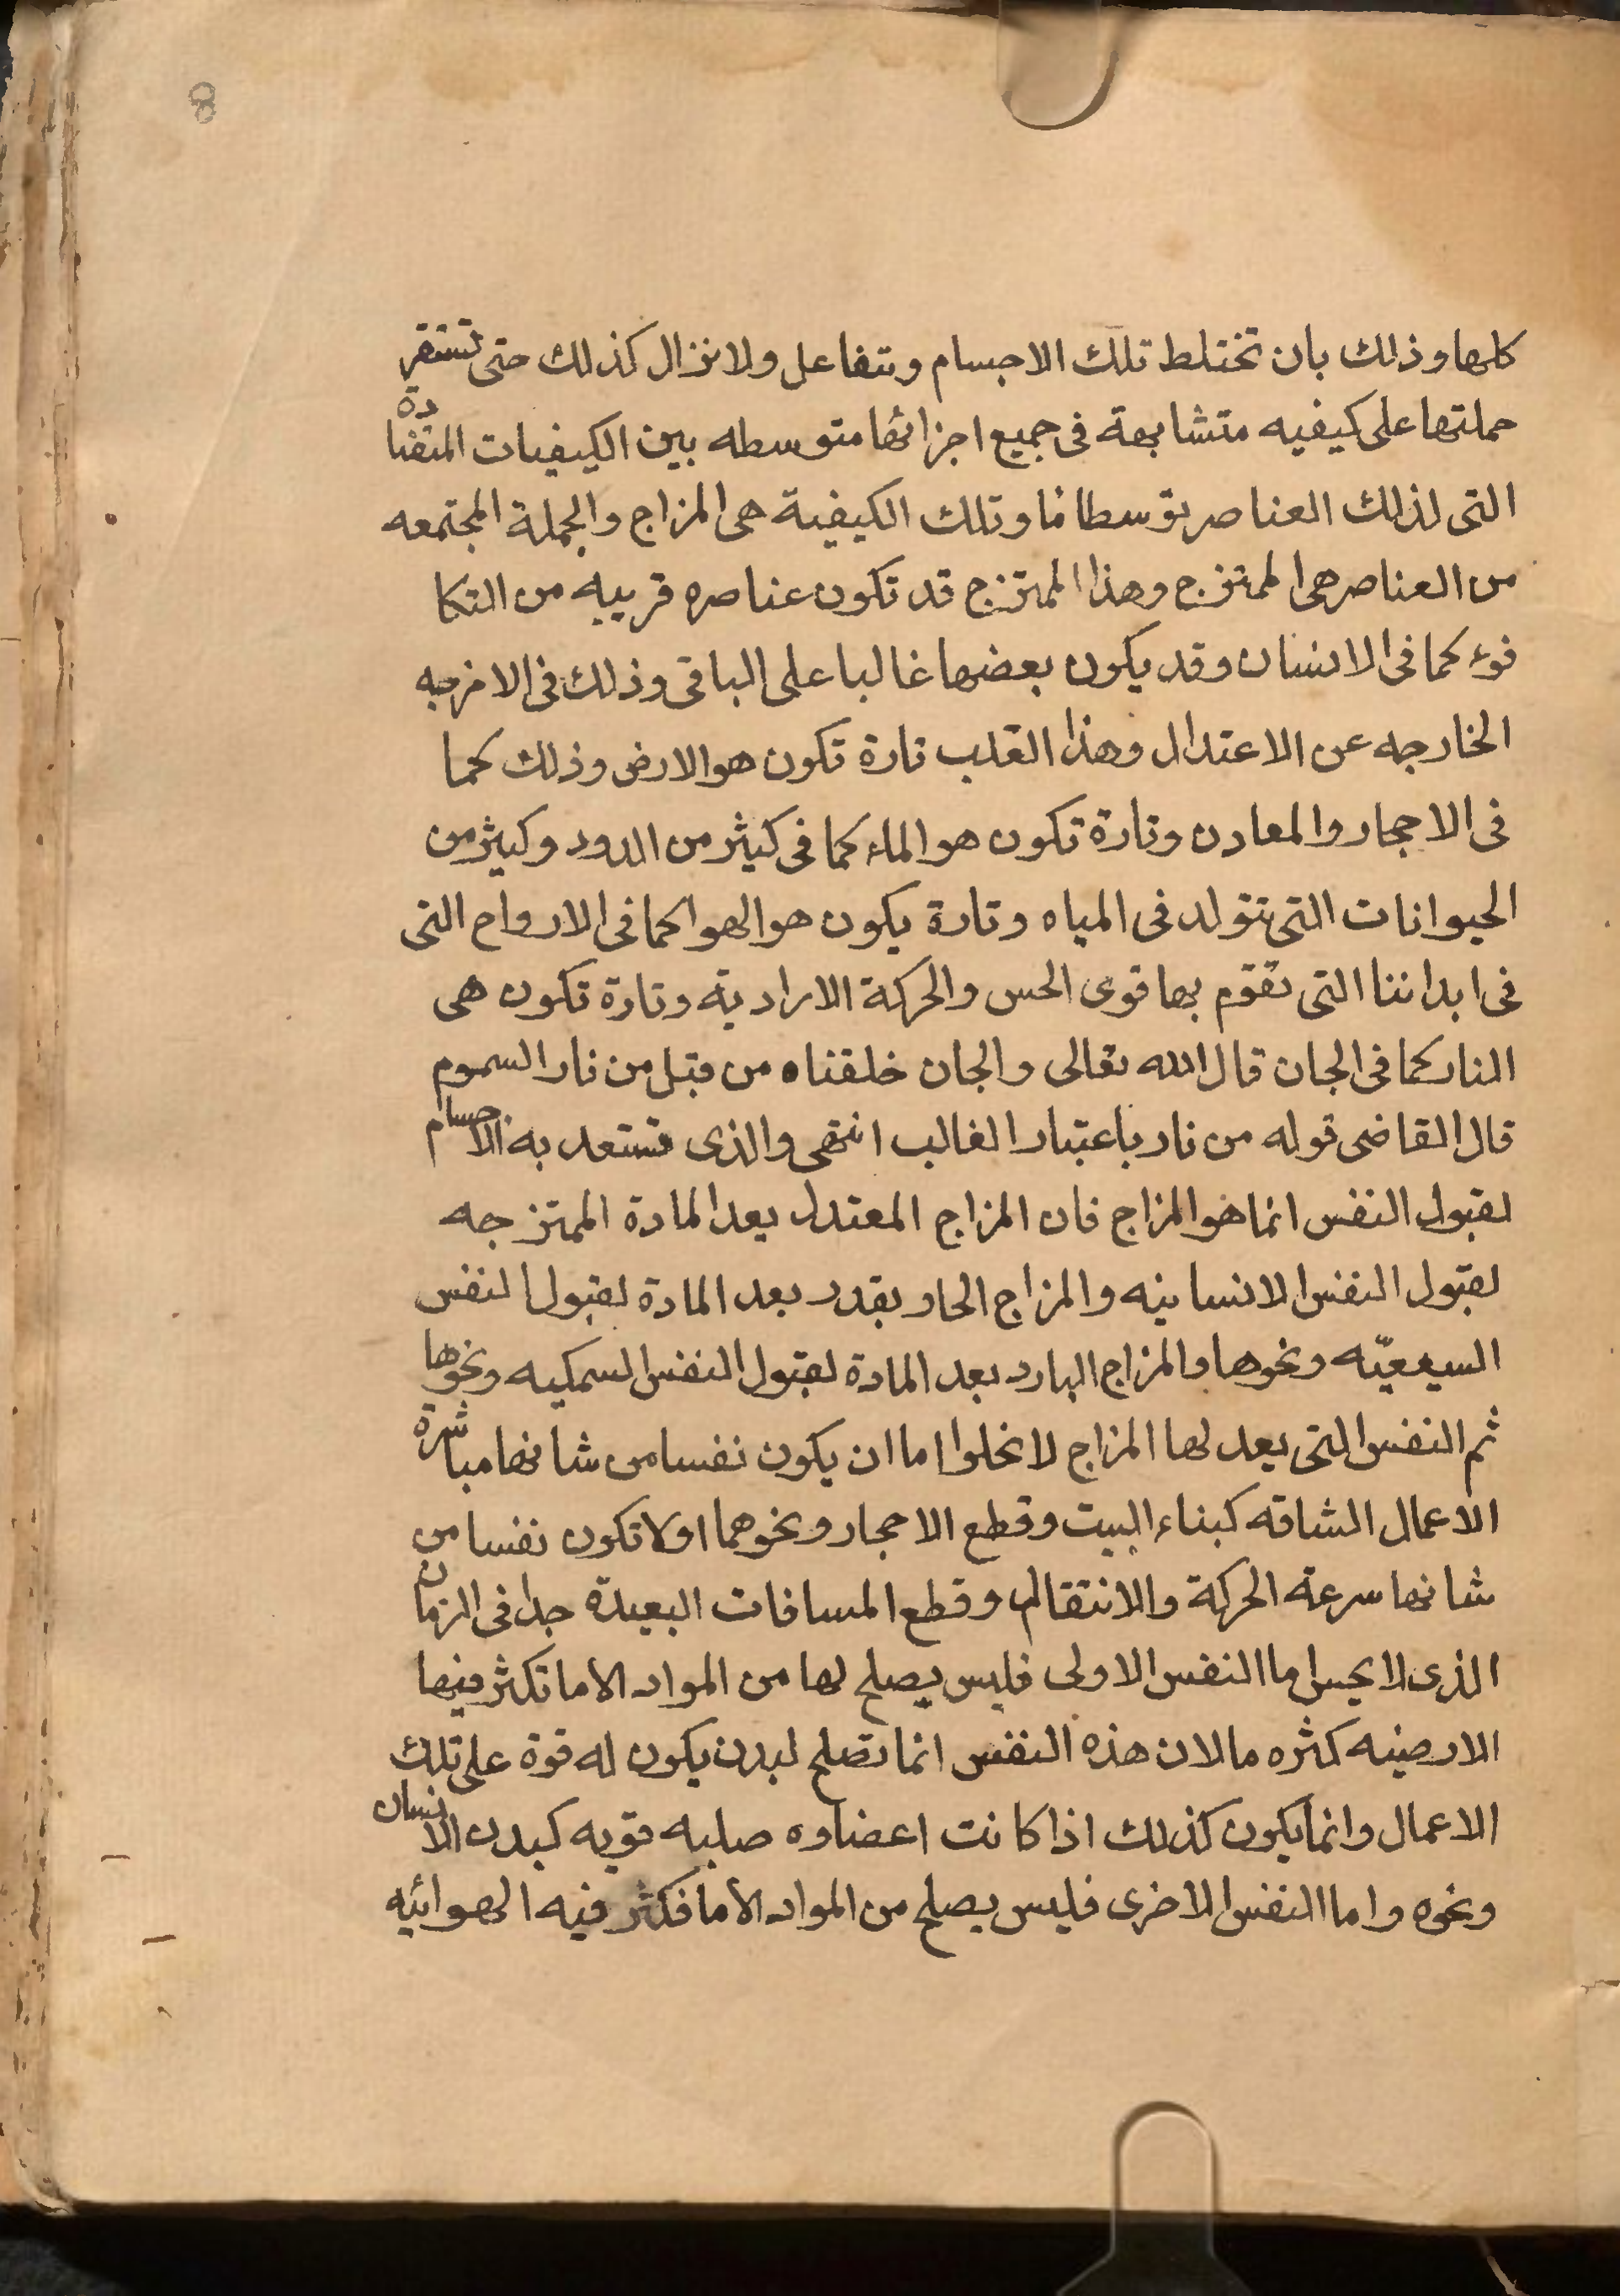 8
كلها وذلك بان تختلط تلك الاجسام وتتفاعل ولا نزال كذلك حتى تستقر
حملتها على كيفيه متشابهة فى جميع اجزائها متوسطه بين الكيفيات المتضادة
التى لذلك العناصر توسطا ما وتلك الكيفية هى المزاج والجملة المجتمعه
من العناصر هى الممتزج وهذا الممتزج قد تكون عناصره قريبه من التكا
فوء كما فى الانسان وقد يكون بعضها غالبا على الباقى وذلك فى الامزجه
الخارجه عن الاعتدال وهذا القلب تارة تكون هو الارض وذلك كما
فى الاحجار والمعادن وتارة تكون هو الماء كما فى كيثر من الدود وكيثر من
الحيوانات التى تتولد فى المياه وتارة يكون هو الهوا كما فى الارواح التى
فى ابداننا التى تقوم بها قوى الحس والحركة الارادية وتارة تكون هى
النار كما فى الجان قال الله تعالى والجان خلقناه من قبل من نار السموم
قال القاضى قوله من نار باعتبار الغالب انتهى والذى تستعد به الاجسام
لقبول النفس انما هو المزاج فان المزاج المعتدل يعد المادة الممتزجه
لقبول النفس الانسانيه والمزاج الحار بقدر يعد المادة لقبول النفس
السيعيّه ونحوها والمزاج البارد يعد المادة لقبول النفس السمكيه ونحوها
ثم النفس التى يعد لها المزاج لا نخلوا اما ان يكون نفسا من شانها مباشرة
الاعمال الشاقه كبناء البيت وقطع الاحجار ونحوهما اولا تكون نفسا من
شانها سرعة الحركة والانتقال وقطع المسافات البعيدة جدا فى الزمان
الذى لا يحس اما النفس الاولى فليس يصلح لها من المواد الا ما تكثر فيها
الارضيه كثره ما لان هذه النفس انما تصلح لبدن يكون له قوة على تلك
الاعمال وانما يكون كذلك اذا كانت اعضاوه صلبه قويه كبدن الانسان
ونحوه واما النفس الاخرى فليس يصلح من المواد الا ما فكثر فيه الهوائيه